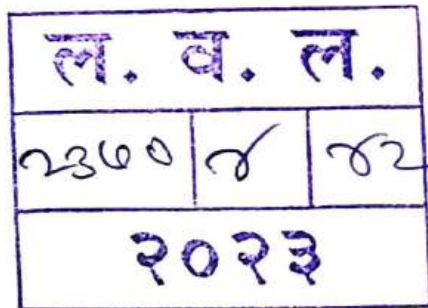 ल. व. ल.
२३७० ४ ४२
२०२३